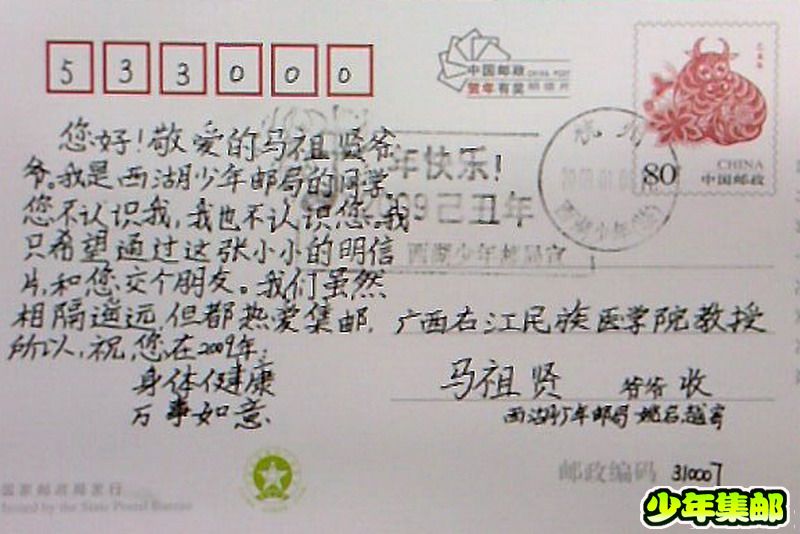 533000
中国邮政 CHINA POST
贺年有奖 明信片
己丑年
80
CHINA
中国邮政
年快乐！
2009己丑年
西湖少年邮局宣
您好！敬爱的马祖贤爷
爷。我是西湖少年邮局的同学，
您不认识我，我也不认识您。我
只希望通过这张小小的明信
片，和您交个朋友。我们虽然
相隔遥远，但都热爱集邮，
所以，祝您在2009年：
身体健康
万事如意
广西右江民族医学院教授
马祖贤 爷爷 收
西湖少年邮局
邮政编码 310007
国家邮政局发行
Issued by the State Postal Bureau
少年集邮